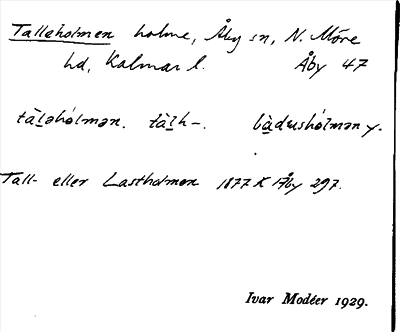 Talleholmen holme, Åby sn, N. Möre
hd, Kalmar l. Åby 47
tàlǝhólmǝn. tàlh-. bàdushólmǝn y.
Tall- eller Lastholmen 1877 K Åby 297.
Ivar Modéer 1929.